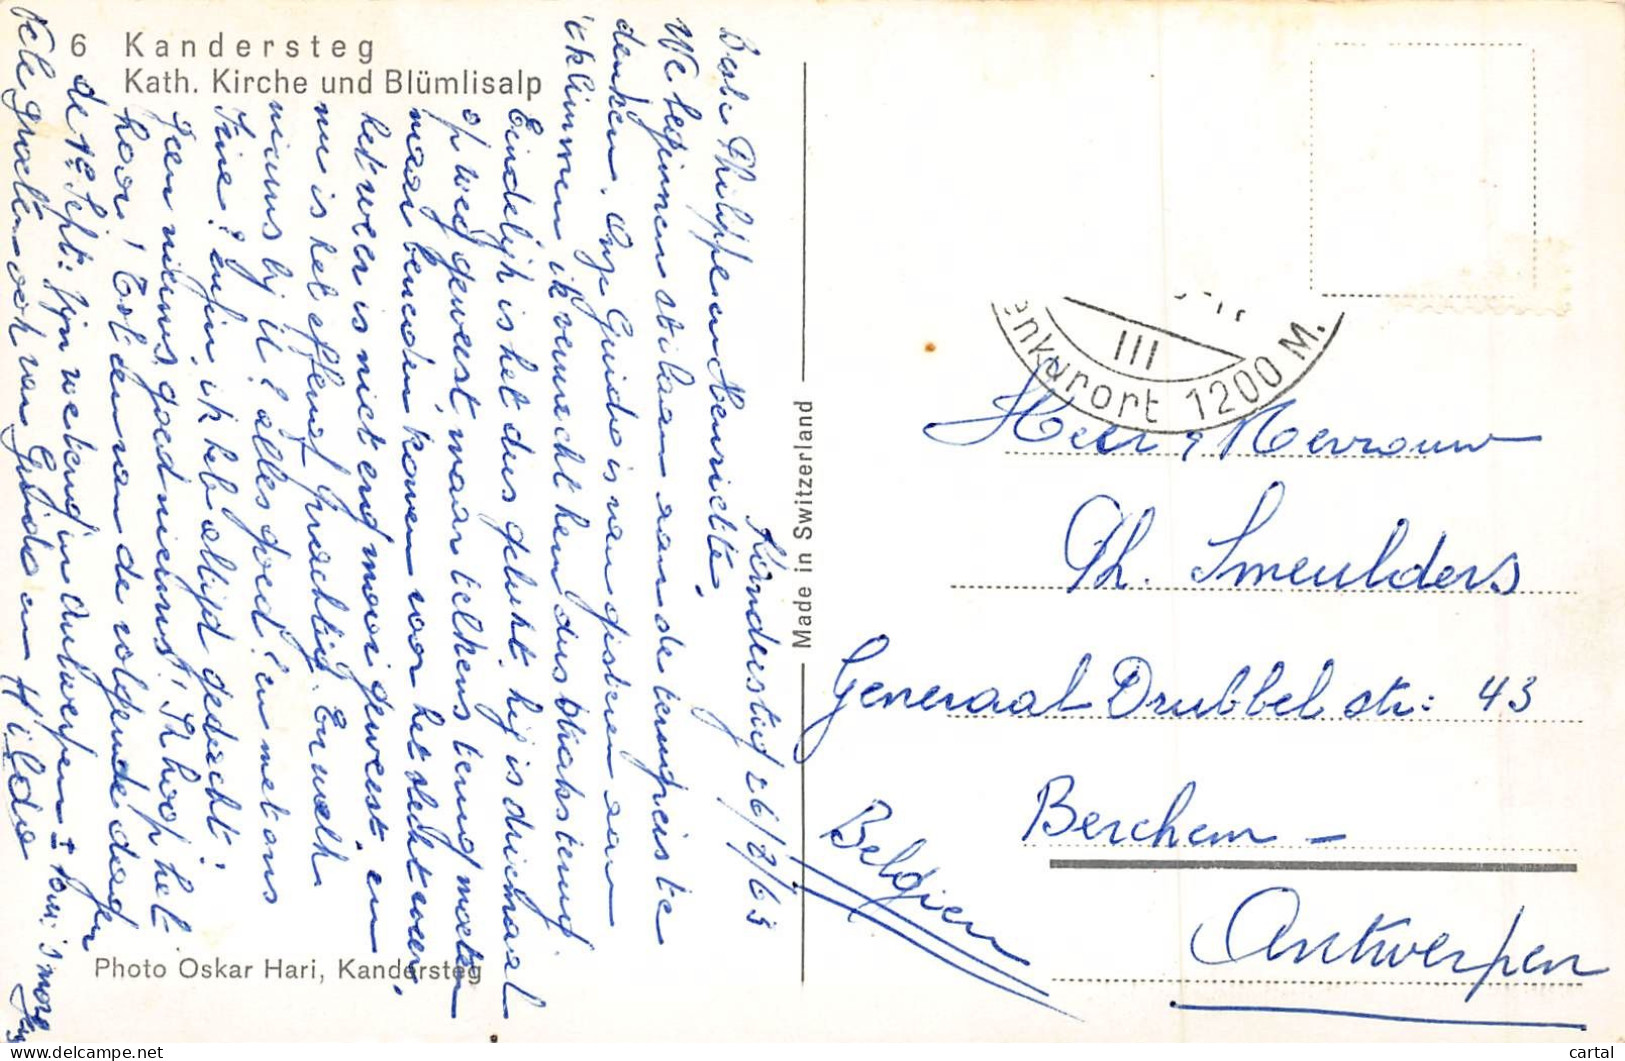 6 Kandersteg
Kath. Kirche und Blümlisalp
Kandersteg 26/8/63
Beste Philippe en Henriette.
We beginnen stilaan aan de terugreis te
denken. Onze Guido is van gisteren aan
't klimmen ik verwacht hem dus straks terug.
Eindelijk is het dus gelukt, hij is driemaal
op weg geweest, maar telkens terug moeten
naar beneden komen voor het slecht weer.
het weer is niet erg mooi geweest, en
nu is het effenaf prachtig. En welk
nieuws bij U? alles goed? en met ons
Irine? enfin ik heb altijd gedacht:
geen nieuws, goed nieuws! 'k hoop het
hoor! Tot een van de volgende dagen
de 1e Sept: zijn we terug in Antwerpen
Vele groeten ook van Guido en Hilda
Photo Oskar Hari, Kandersteg
Made in Switzerland
enkurort 1200 M.
III
Heer & Mevrouw
Ph. Smeulders
Generaal Drubbel str: 43
Berchem -
Antwerpen
Belgien
cartal
www.delcampe.net